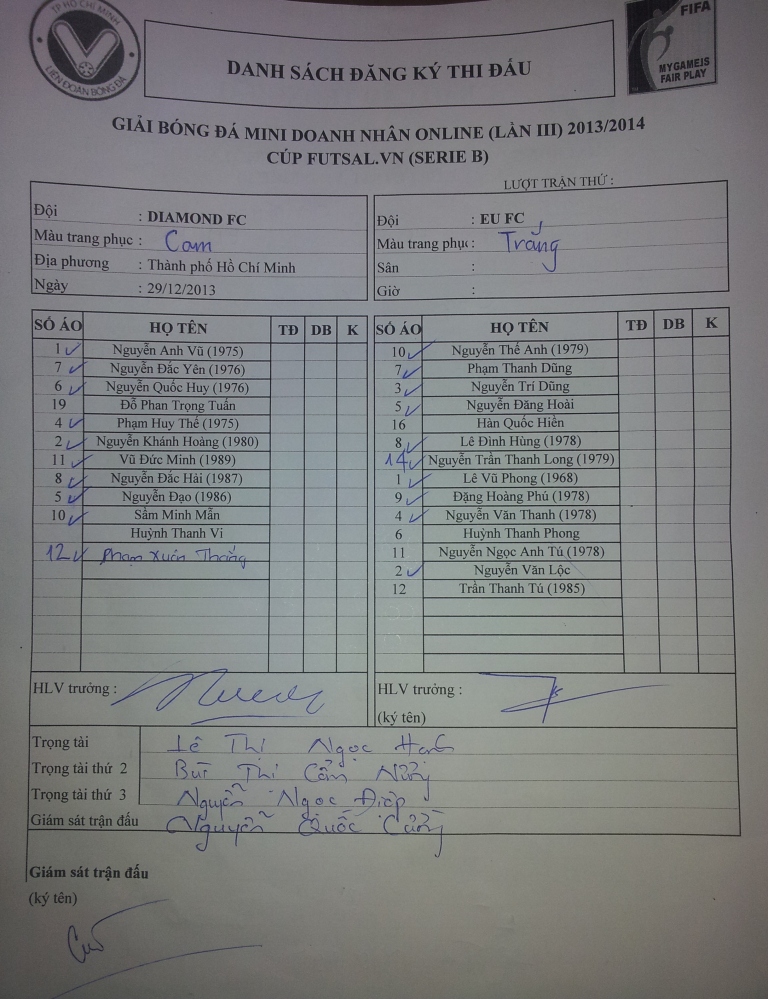 TP HỒ CHÍ MINH
LIÊN ĐOÀN BÓNG ĐÁ
DANH SÁCH ĐĂNG KÝ THI ĐẤU
FIFA
MY GAME IS
FAIR PLAY
GIẢI BÓNG ĐÁ MINI DOANH NHÂN ONLINE (LẦN III) 2013/2014
CÚP FUTSAL.VN (SERIE B)
LƯỢT TRẬN THỨ :
Đội : DIAMOND FC
Màu trang phục : Cam
Địa phương : Thành phố Hồ Chí Minh
Ngày : 29/12/2013
Đội : EU FC
Màu trang phục : Trắng
Sân :
Giờ :
SỐ ÁO HỌ TÊN TĐ DB K
1 Nguyễn Anh Vũ (1975)
7 Nguyễn Đắc Yên (1976)
6 Nguyễn Quốc Huy (1976)
19 Đỗ Phan Trọng Tuấn
4 Phạm Huy Thế (1975)
2 Nguyễn Khánh Hoàng (1980)
11 Vũ Đức Minh (1989)
8 Nguyễn Đắc Hải (1987)
5 Nguyễn Đạo (1986)
10 Sầm Minh Mẫn
Huỳnh Thanh Vi
12 Phạm Xuân Thắng
SỐ ÁO HỌ TÊN TĐ DB K
10 Nguyễn Thế Anh (1979)
7 Phạm Thanh Dũng
3 Nguyễn Trí Dũng
5 Nguyễn Đăng Hoài
16 Hàn Quốc Hiền
8 Lê Đình Hùng (1978)
14 Nguyễn Trần Thanh Long (1979)
1 Lê Vũ Phong (1968)
9 Đặng Hoàng Phú (1978)
4 Nguyễn Văn Thanh (1978)
6 Huỳnh Thanh Phong
11 Nguyễn Ngọc Anh Tú (1978)
2 Nguyễn Văn Lộc
12 Trần Thanh Tú (1985)
HLV trưởng :
HLV trưởng :
(ký tên)
Trọng tài Lê Thị Ngọc
Trọng tài thứ 2 Bùi Thị Cẩm
Trọng tài thứ 3 Nguyễn Ngọc Điệp
Giám sát trận đấu Nguyễn Quốc
Giám sát trận đấu
(ký tên)